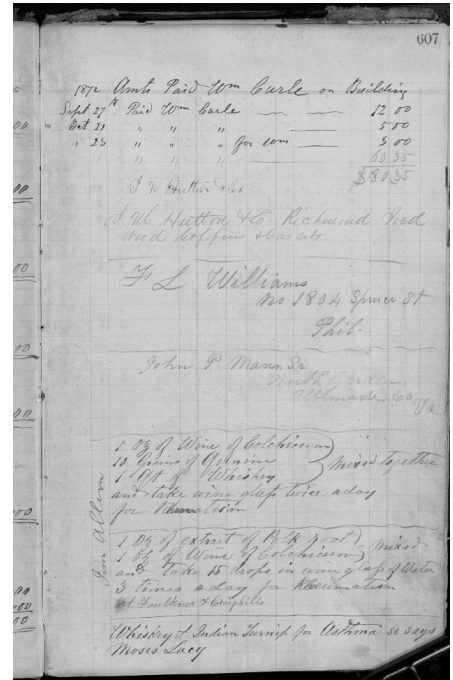 607
1872 Amt Paid Wm Curle on Building
Sept 27th Paid Wm Curle — — 12 00
Oct 21 " " " — 5 00
" 23 " " " for corn — 3 00
" " " — 60 35
$80 35
J M Hutton & Co
J. M. Hutton & Co Richmond Ind
Wood Coffins & Caskets
F L Williams
No 1804 Spruce St
Phil.
John P Mann Sr
North Garden
Albemarle Co Va
1 Oz of Wine of Colchicum
10 Grains of Quinine
1 Qt of Whiskey
Mixed together
and take wine glass twice a day
for Rheumatism
Jim Allen
1 Oz of extract of Polk root
1 Oz of Wine of Colchicum
mixed
and take 15 drops in wine glass of Water
3 times a day for Rheumatism
at Faulkner & Craighills
Whiskey & Indian Turnip for Asthma so says
Moses Lacy